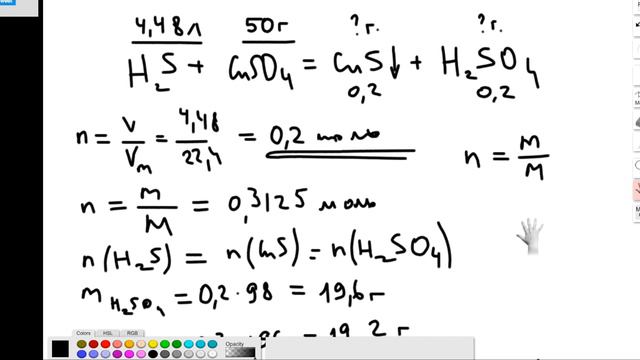 4,48л 50г ?г. ?г.
H₂S + CuSO₄ = CuS↓ + H₂SO₄
0,2 0,2
n = V/Vm = 4,48/22,4 = 0,2 моль
n = m/M
n = m/M = 0,3125 моль
n(H₂S) = n(CuS) = n(H₂SO₄)
m H₂SO₄ = 0,2 · 98 = 19,6 г
= 19,2 г
Colors HSL RGB
Opacity